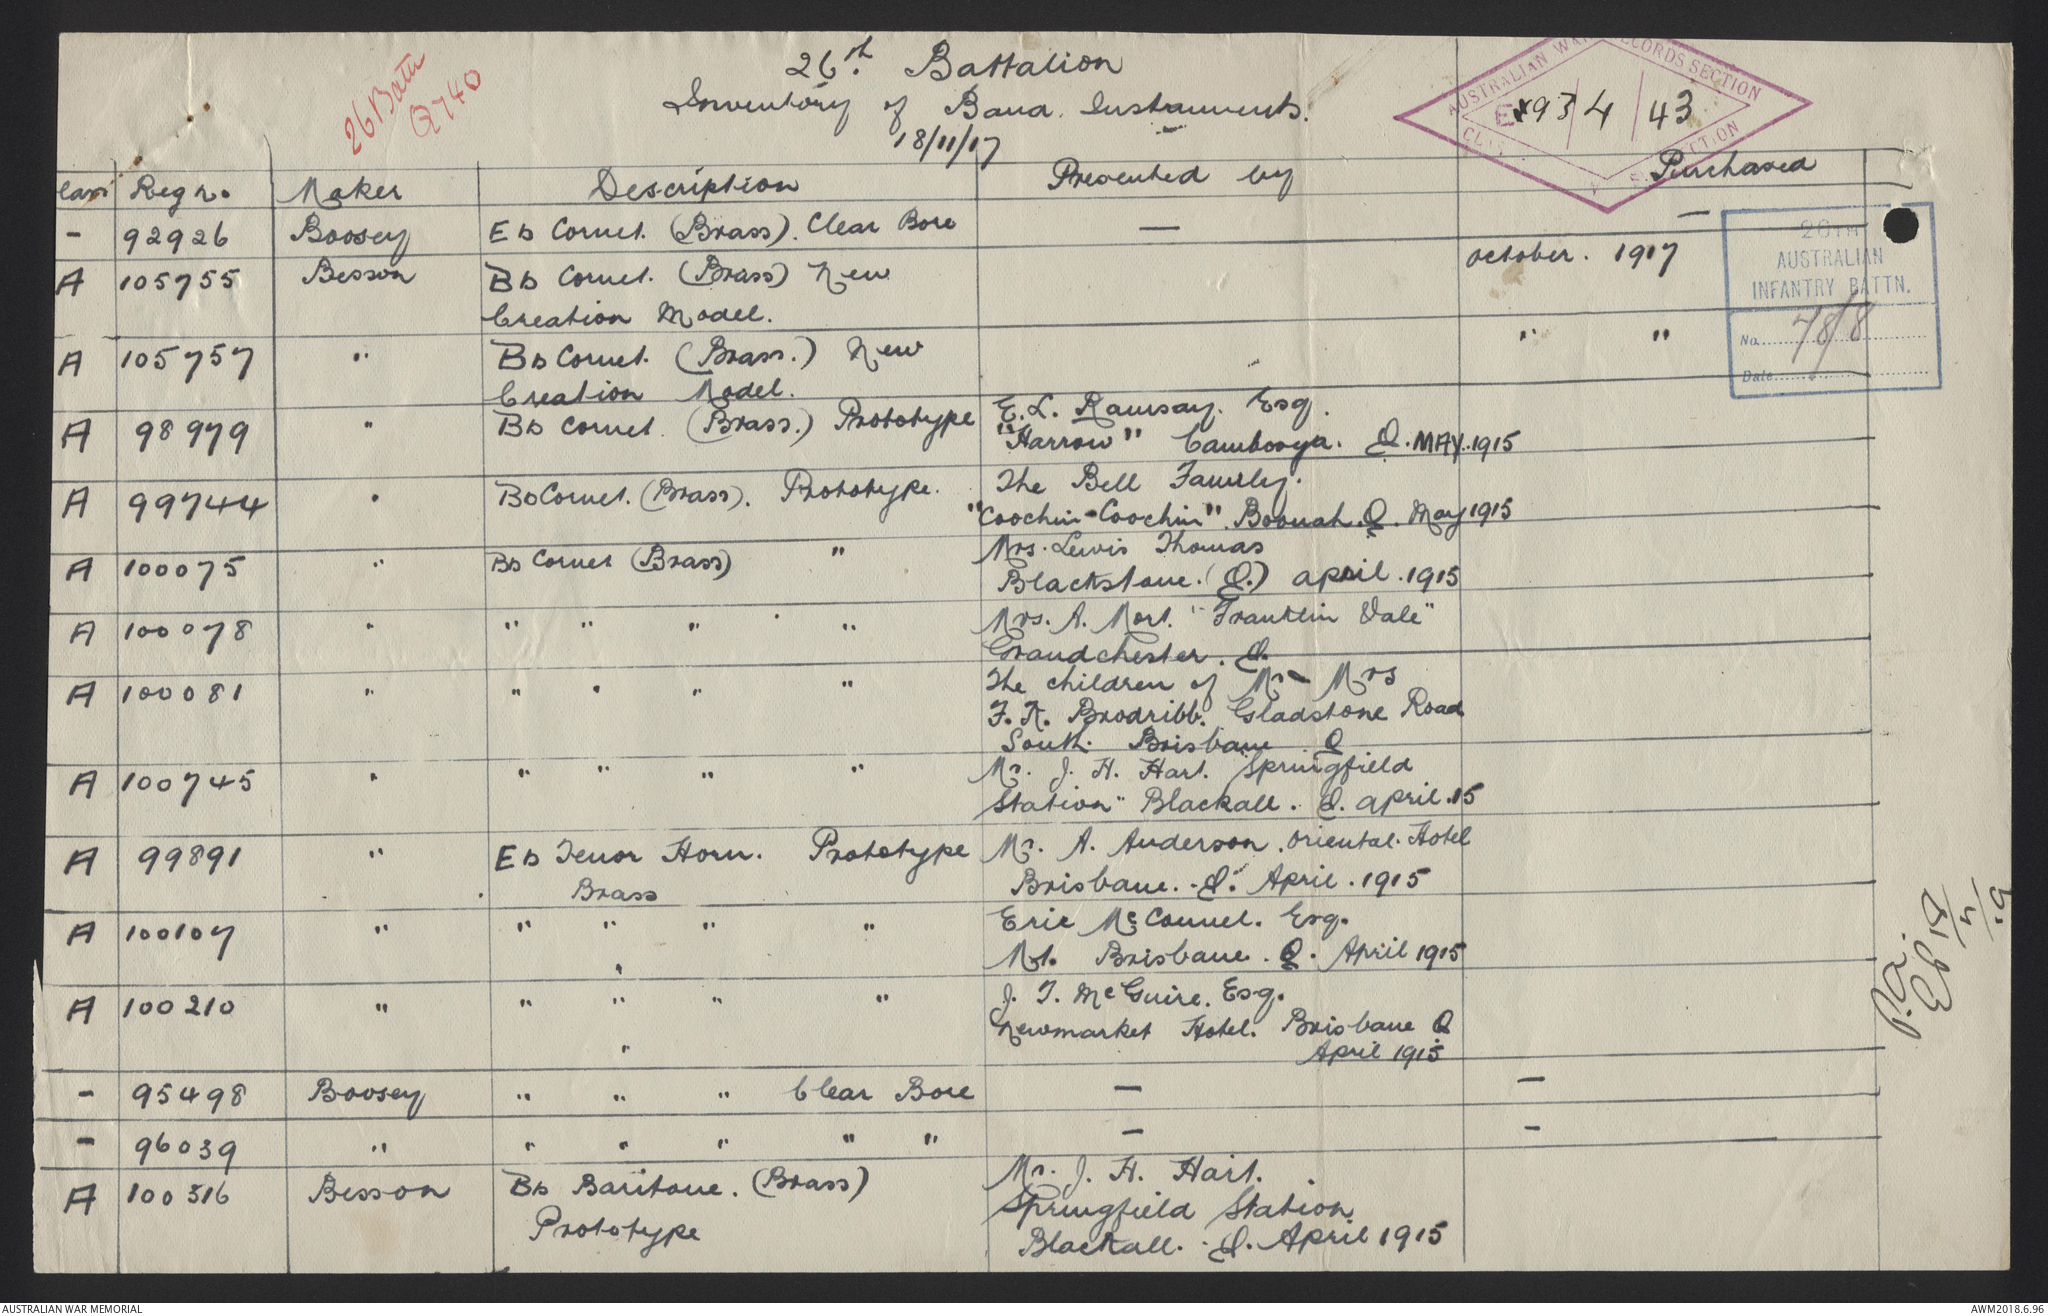 26th. Battalion
Inventory of Band Instruments.
18/11/17
26 Battn
Q 740
AUSTRALIAN WAR RECORDS SECTION
E 93/4/43
Class Reg no. Maker Description Presented by Purchased
- 92926 Boosey Eb Cornet. (Brass). Clear Bore — —
A 105755 Besson Bb Cornet. (Brass) New October. 1917
Creation Model.
A 105757 " Bb Cornet. (Brass.) New " "
Creation Model.
A 98979 " Bb Cornet. (Brass.) Prototype E. L. Ramsay. Esq.
"Harrow" Cambooya. Q. MAY. 1915
A 99744 " Bb Cornet. (Brass). Prototype. The Bell Family.
"Coochin-Coochin". Boonah. Q. May 1915
A 100075 " Bb Cornet (Brass) " Mrs. Lewis Thomas
Blackstone. (Q.) april. 1915
A 100078 " " " " " Mrs. A. Mort. "Franklin Vale"
Grandchester. Q.
A 100081 " " " " " The children of Mr - Mrs
F. K. Brodribb. Gladstone Road
South. Brisbane. Q
A 100745 " " " " " Mr. J. H. Hart. Springfield
Station" Blackall. Q. april. 15
A 99891 " Eb Tenor Horn. Prototype Mr. A. Anderson. Oriental. Hotel
Brass Brisbane. Q. April. 1915
A 100107 " " " " " Eric McConnel. Esq.
" Mt. Brisbane. Q. April 1915
A 100210 " " " " " J. T. McGuire. Esq.
Newmarket Hotel. Brisbane Q
" April 1915
- 95498 Boosey " " " Clear Bore — —
- 96039 " " " " " " — -
A 100316 Besson Bb Baritone. (Brass) Mr. J. H. Hart.
Prototype Springfield Station
Blackall. Q. April 1915
26TH
AUSTRALIAN
INFANTRY BATTN.
No. 78/8
Date
AUSTRALIAN WAR MEMORIAL
AWM2018.6.96